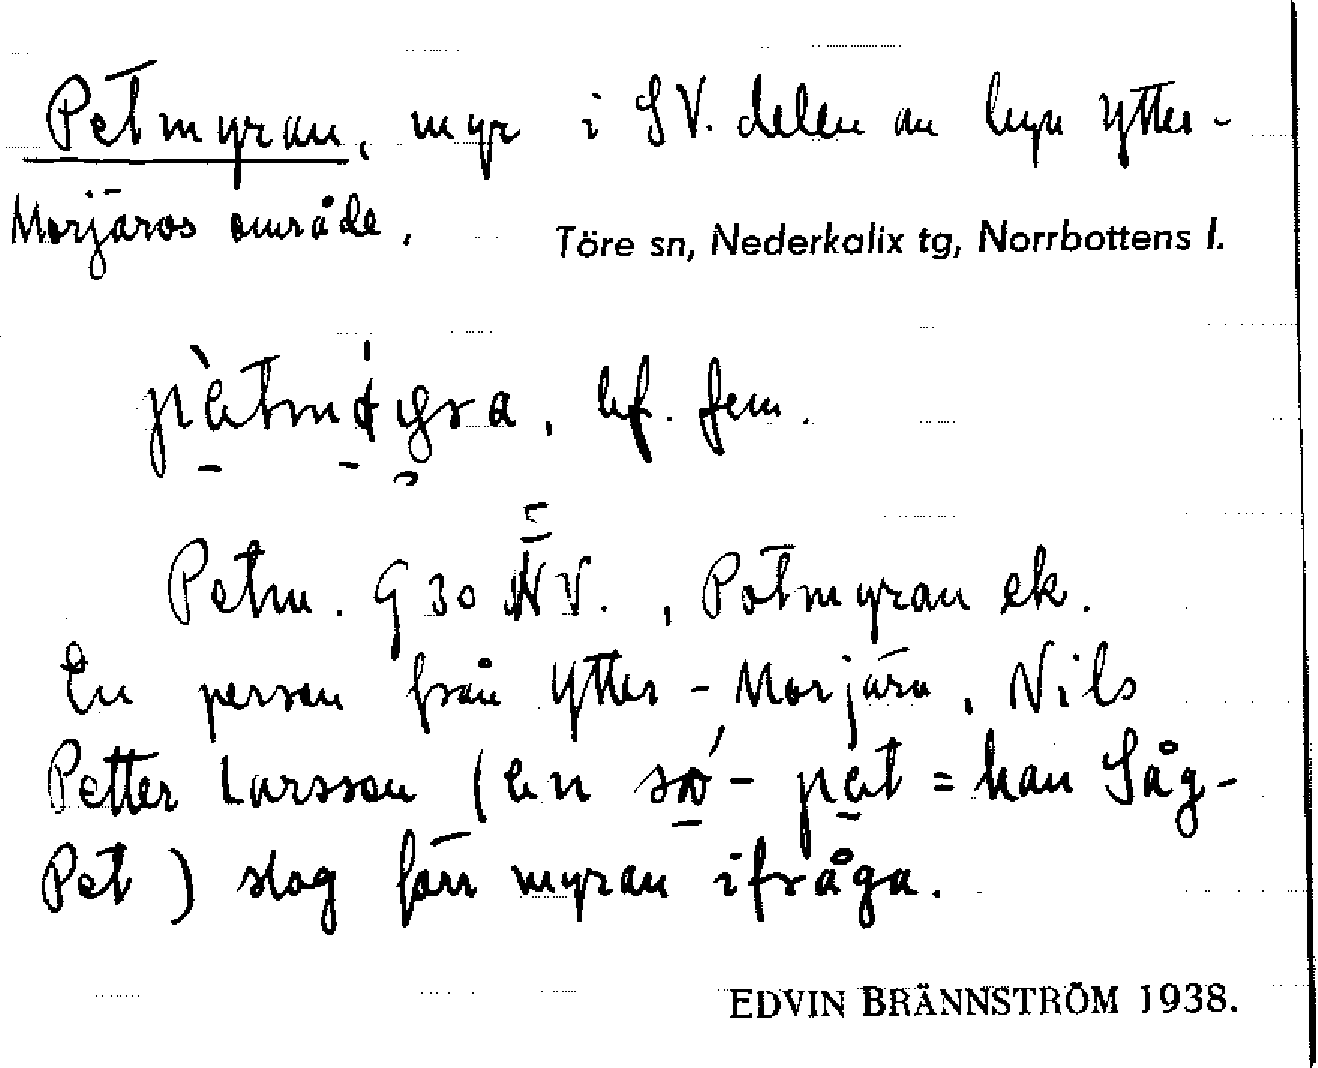 Petmyran, myr i SV. delen av byn Ytter-
Morjärvs område.
Töre sn, Nederkalix tg, Norrbottens l.
bf. fem.
Petm. G 30 NV., Potmyran ek.
En person från Ytter-Morjärv, Nils
Petter Larsson (en = han Såg-
Pet) slog förr myran ifråga.
EDVIN BRÄNNSTRÖM 1938.